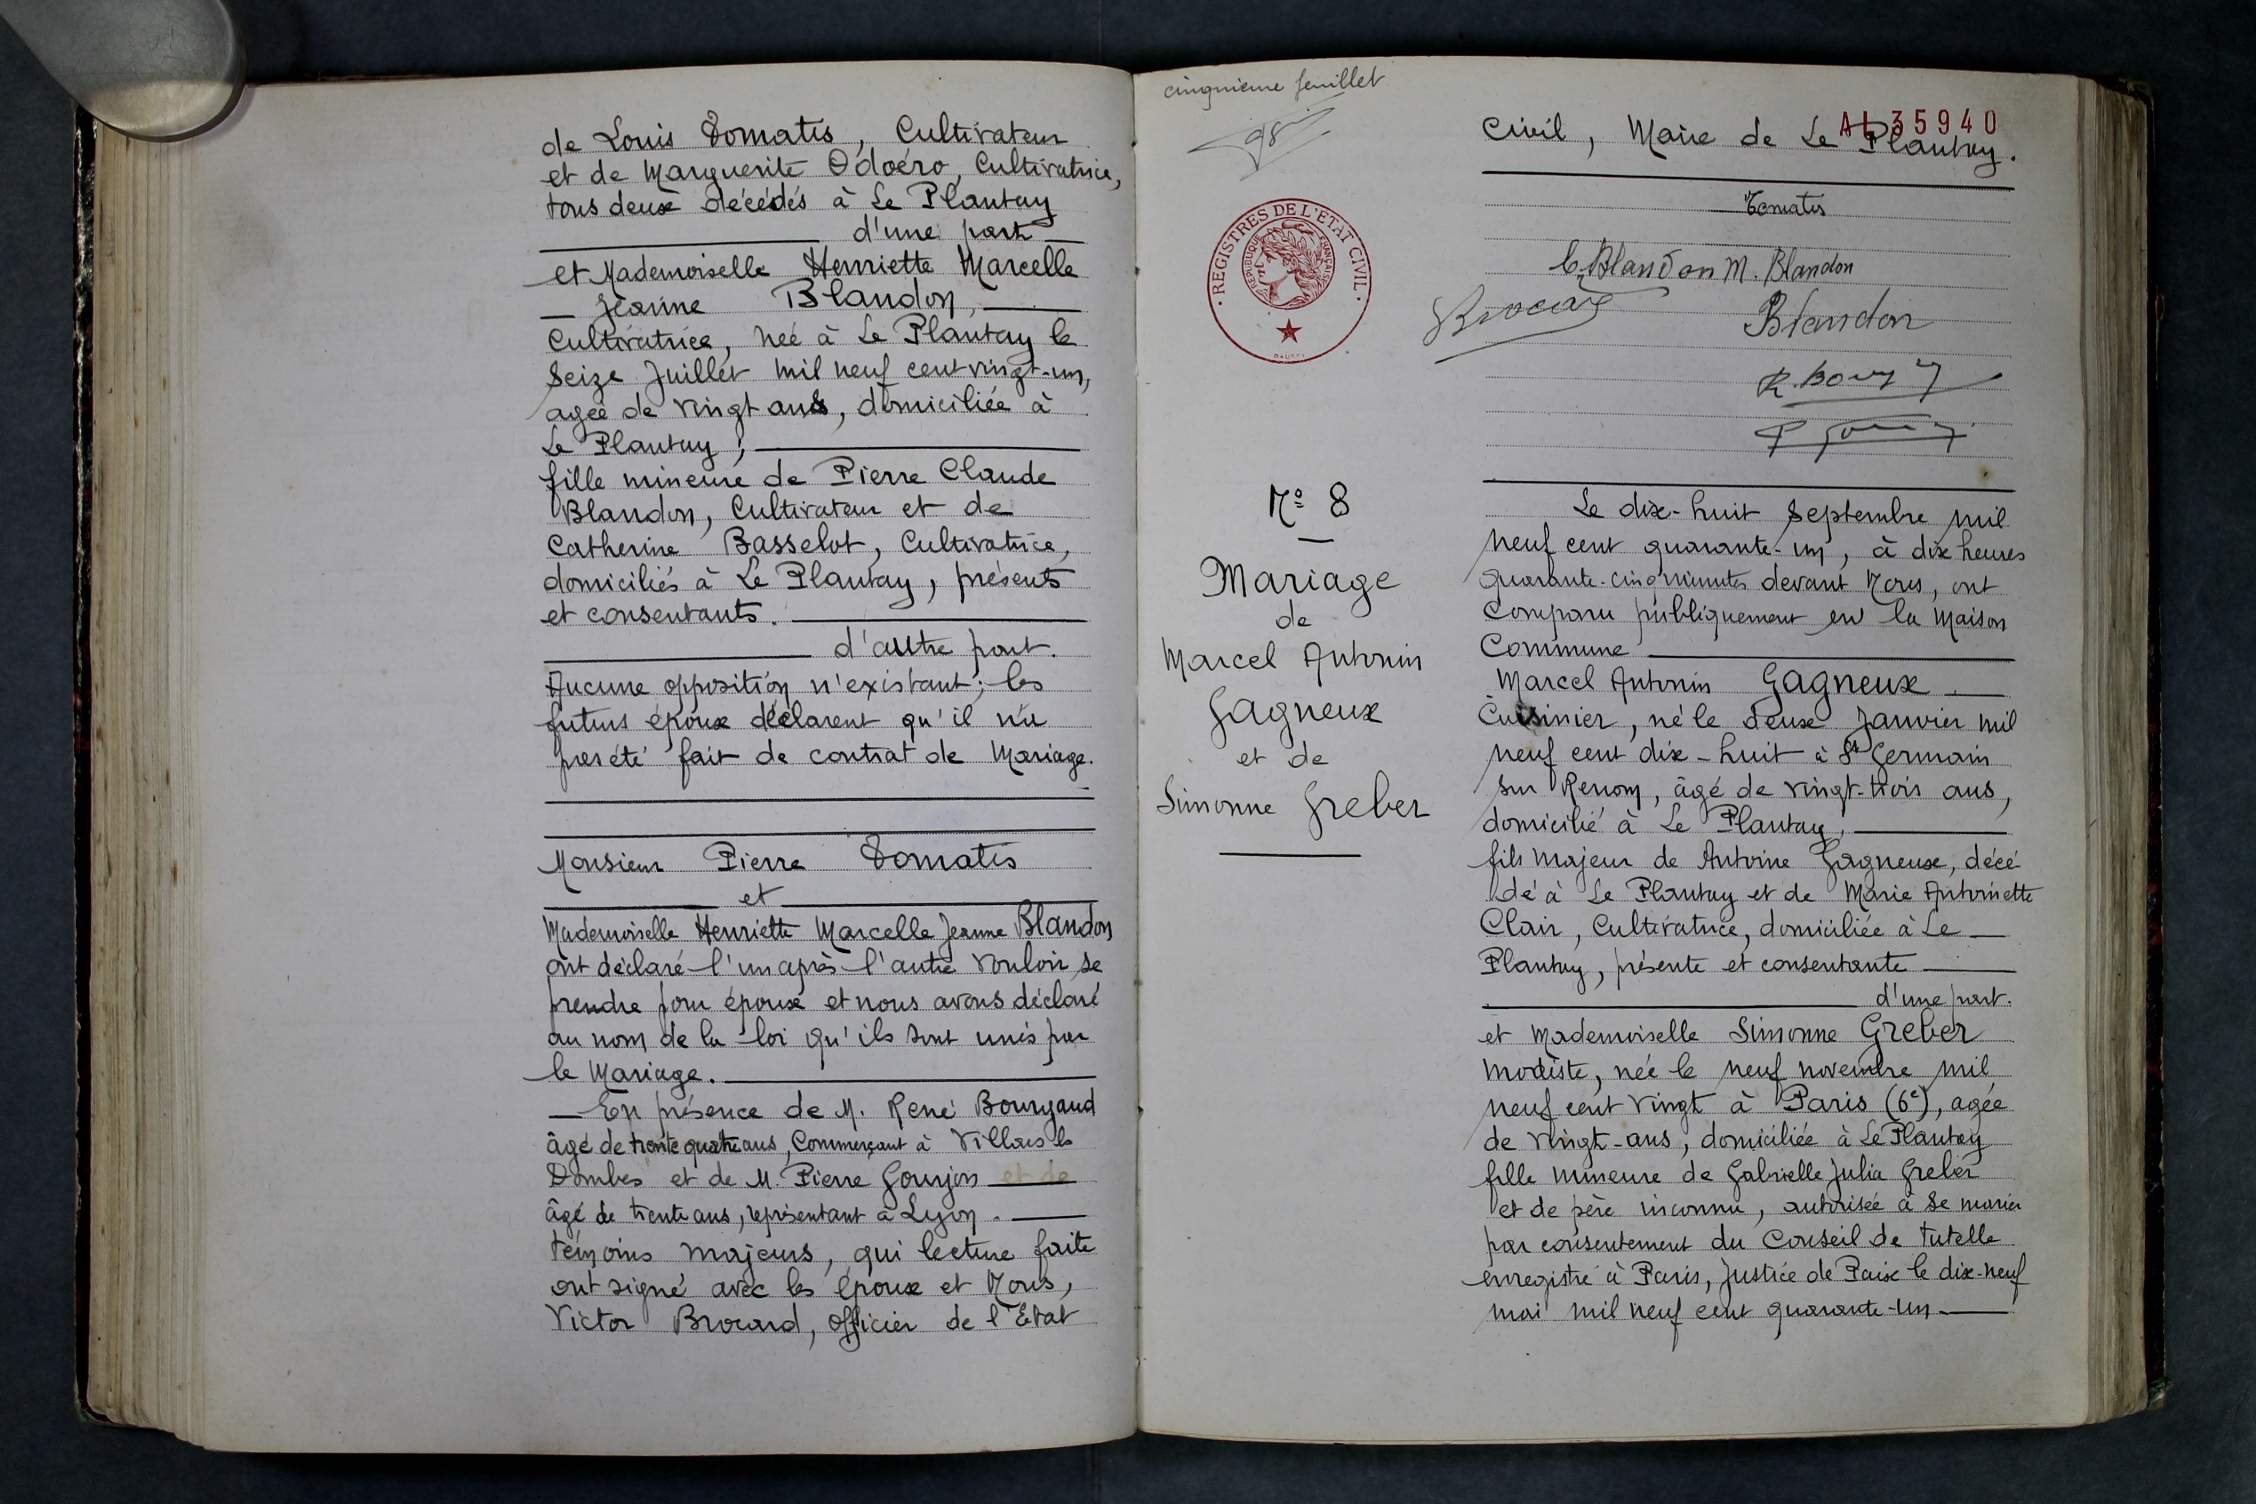 de Louis Tomatis, Cultivateur
et de Marguerite Odoéro, Cultivatrice,
tous deux décédés à Le Plantay
d'une part
et Mademoiselle Henriette Marcelle
Jeanne Blandon,
Cultivatrice, née à Le Plantay le
seize Juillet mil neuf cent vingt-un,
agée de vingt ans, domiciliée à
Le Plantay,
fille mineure de Pierre Claude
Blandon, Cultivateur et de
Catherine Basselot, Cultivatrice,
domiciliés à Le Plantay, présents
et consentants.
d'autre part.
Aucune opposition n'existant; les
futurs époux déclarent qu'il n'a
pas été fait de contrat de Mariage.
Monsieur Pierre Tomatis
et
Mademoiselle Henriette Marcelle Jeanne Blandon
ont déclaré l'un après l'autre vouloir se
prendre pour époux et nous avons déclaré
au nom de la loi qu'ils sont unis par
le Mariage.
En présence de M. René Bourgaud
âgé de trente quatre ans, Commerçant à Villars les
Dombes et de M. Pierre Goujon et de
âgé de trente ans, représentant à Lyon.
témoins majeurs, qui lecture faite
ont signé avec les époux et Nous,
Victor Brocard, officier de l'Etat
cinquième feuillet
REGISTRES DE L'ETAT CIVIL
REPUBLIQUE FRANÇAISE
N° 8
Mariage
de
Marcel Antonin
Gagneux
et de
Simonne Greber
AL 35940
Civil, Maire de Le Plantay.
Tomatis
C. Blandon M. Blandon
Brocard
Blandon
Le dix-huit Septembre mil
neuf cent quarante-un, à dix heures
quarante-cinq minutes devant Nous, ont
Comparu publiquement en la Maison
Commune
Marcel Antonin Gagneux
Cuisinier, né le deux Janvier mil
neuf cent dix-huit à St Germain
sur Renom, âgé de vingt-trois ans,
domicilié à Le Plantay,
fils majeur de Antoine Gagneux, décé-
dé à Le Plantay et de Marie Antoinette
Clair, Cultivatrice, domiciliée à Le
Plantay, présente et consentante
d'une part.
et Mademoiselle Simonne Greber
modiste, née le neuf novembre mil
neuf cent vingt à Paris (6e), agée
de vingt-ans, domiciliée à Le Plantay
fille mineure de Gabrielle Julia Greber
et de père inconnu, autorisée à se marier
par consentement du Conseil de tutelle
enregistré à Paris, Justice de Paix le dix-neuf
mai mil neuf cent quarante-un